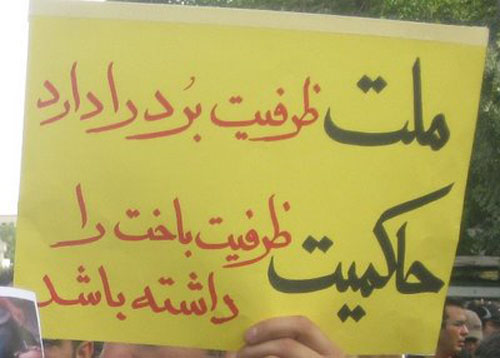 ملت ظرفیت بُرد را دارد
حاکمیت ظرفیت باخت را
داشته باشد